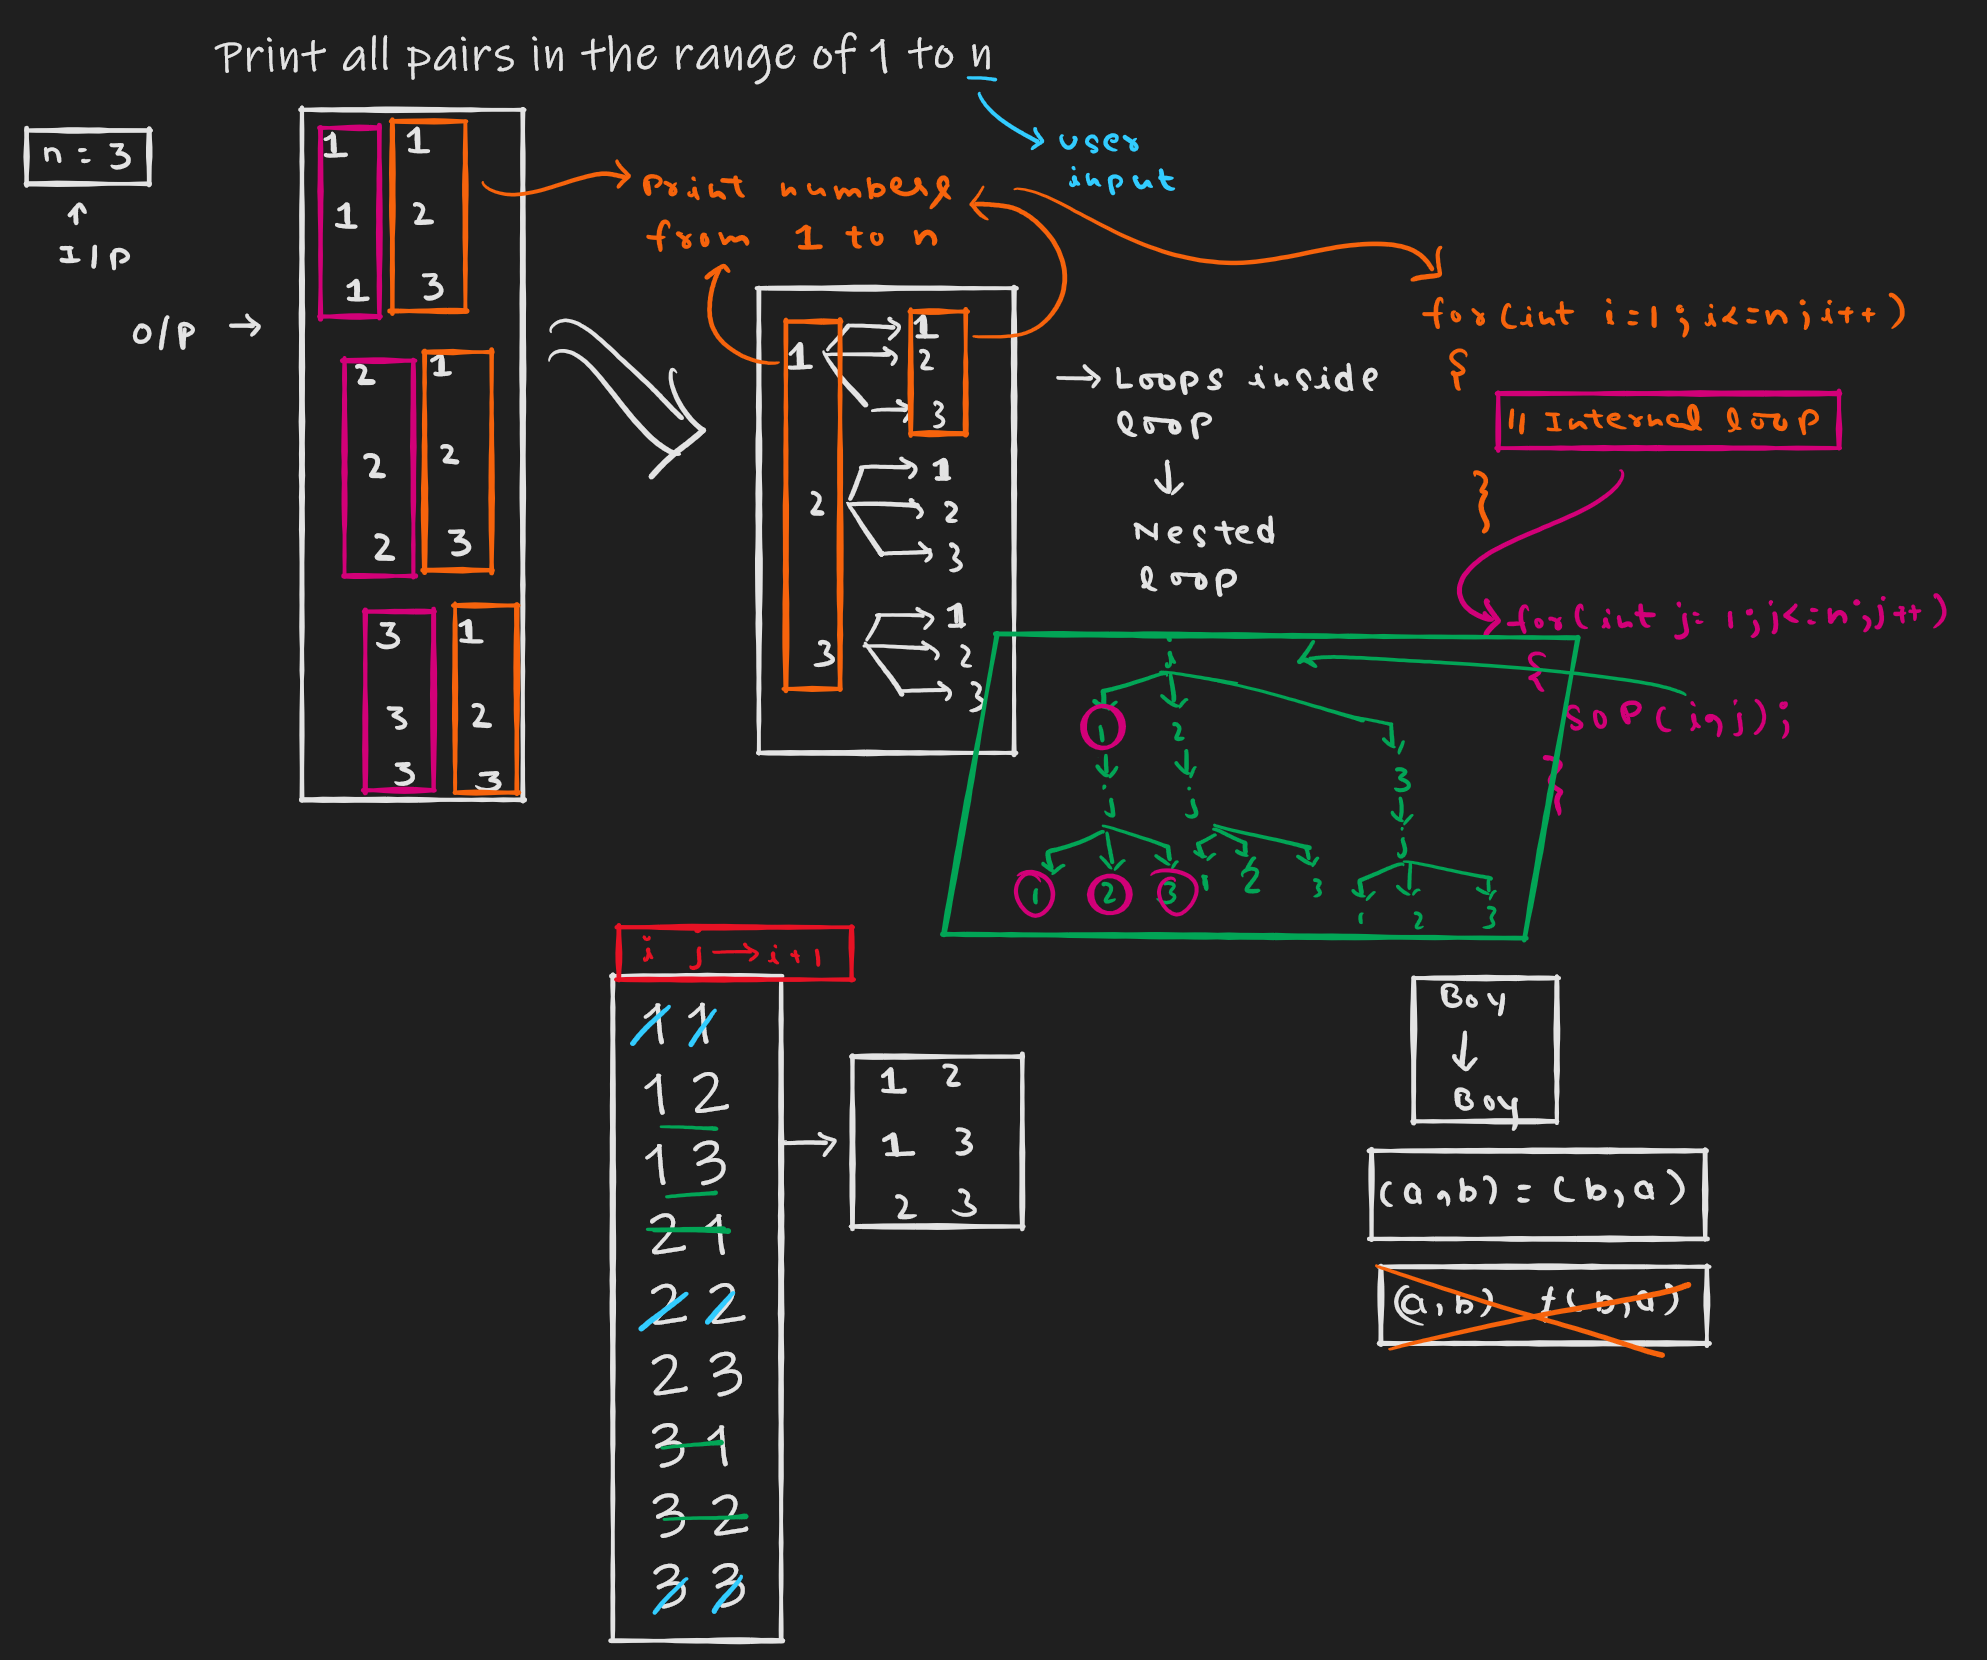 Print all pairs in the range of 1 to n
n = 3
I/p
O/p →
1 1
1 2
1 3
2 1
2 2
2 3
3 1
3 2
3 3
user
input
print numbers
from 1 to n
1 → 1
→ 2
→ 3
2 → 1
→ 2
→ 3
3 → 1
→ 2
→ 3
→ Loops inside
loop
↓
Nested
loop
for(int i=1;i<=n;i++)
{
// Internal loop
}
for(int j=1;j<=n;j++)
{
SOP(i,j);
}
i
1 2 3
j j j
1 2 3 1 2 3 1 2 3
i j → i+1
1 1
1 2
1 3
2 1
2 2
2 3
3 1
3 2
3 3
1 2
1 3
2 3
Boy
↓
Boy
(a,b) = (b,a)
(a,b) ≠ (b,a)